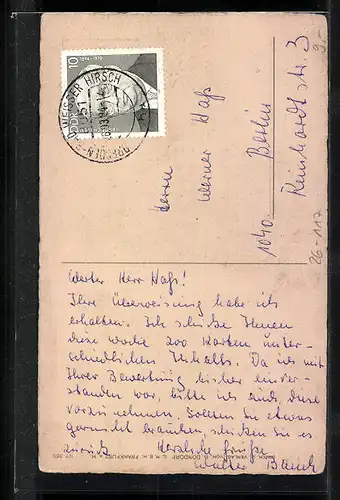 Herrn
Werner Haß
1040. Berlin
Reinhardtstr. 3
9.-
26-117
WEISSER HIRSCH
DRESDEN-
DDR
10
Werter Herr Haß!
Ihre Überweisung habe ich
erhalten. Ich schicke Ihnen
diese Woche 200 Karten unter-
schiedlichen Inhalts. Da ich mit
Ihrer Bewertung bisher einver-
standen war, bitte ich auch, diese
vorzunehmen. Sollten Sie etwas
garnicht brauchen, schicken Sie es
zurück Herzliche Grüße
Walter
B. DONDORF G.M.B.H. FRANKFURT A. M.